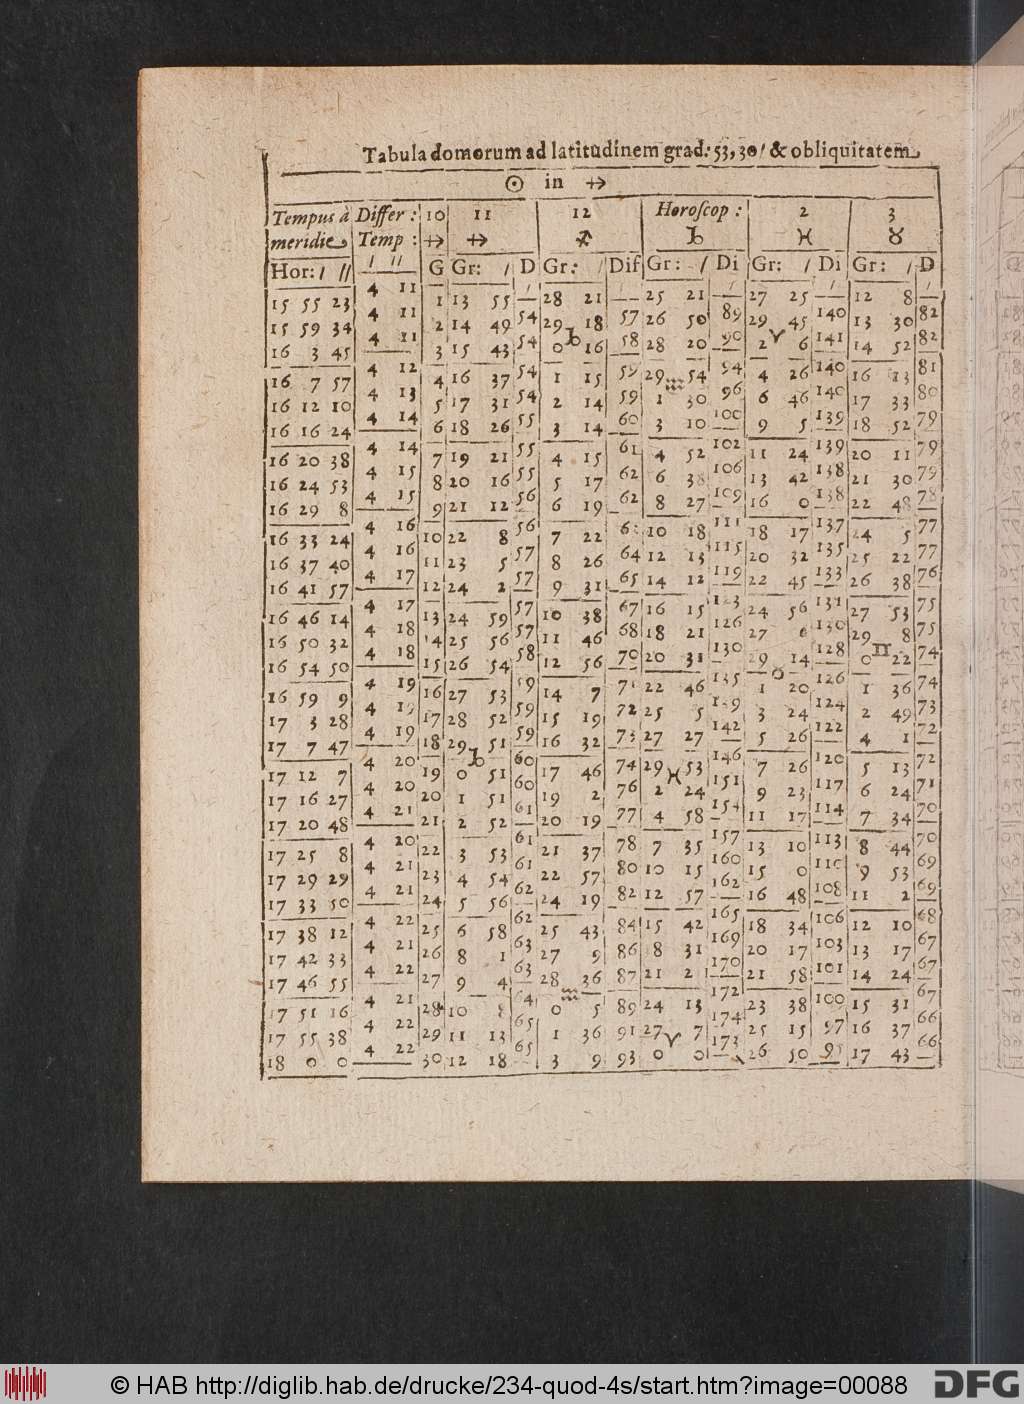 Tabula domorum ad latitudinem grad: 53, 30/ & obliquitatem
☉ in ♐
Tempus à Differ: 10 11 12 Horoscop: 2 3
meridie Temp: ♐ ♐ ♐ ♑ ♓ ♉
Hor: / // / // G Gr: / D Gr: / Dif Gr: / Di Gr: / Di Gr: / D
4 11
15 55 23 1 13 55 28 21 25 21 27 25 12 8
4 11 54 57 89 140 82
15 59 34 2 14 49 29 18 26 50 29 45 13 30
4 11 54 58 90 141 82
16 3 45 3 15 43 0 ♑ 16 28 20 2 ♈ 6 14 52
4 12 54 59 94 140 81
16 7 57 4 16 37 1 15 29 54 4 26 16 13
4 13 54 59 96 140 80
16 12 10 5 17 31 2 14 1 ♒ 30 6 46 17 33
4 14 55 60 100 139 79
16 16 24 6 18 26 3 14 3 10 9 5 18 52
4 14 55 61 102 139 79
16 20 38 7 19 21 4 15 4 52 11 24 20 11
4 15 55 62 106 138 79
16 24 53 8 20 16 5 17 6 38 13 42 21 30
4 15 56 62 109 138 78
16 29 8 9 21 12 6 19 8 27 16 0 22 48
4 16 56 111 137 77
16 33 24 10 22 8 7 22 10 18 18 17 24 5
4 16 57 64 115 135 77
16 37 40 11 23 5 8 26 12 13 20 32 25 22
4 17 57 65 119 133 76
16 41 57 12 24 2 9 31 14 12 22 45 26 38
4 17 57 67 123 131 75
16 46 14 13 24 59 10 38 16 15 24 56 27 53
4 18 57 68 126 130 75
16 50 32 14 25 56 11 46 18 21 27 29 8
4 18 58 70 130 128 74
16 54 50 15 26 54 12 56 20 31 29 14 0 ♊ 22
4 19 59 135 ♉ 126 74
16 59 9 16 27 53 14 7 22 46 1 20 1 36
4 19 59 72 139 124 73
17 3 28 17 28 52 15 19 25 5 3 24 2 49
4 19 59 73 142 122 72
17 7 47 18 29 51 16 32 27 27 5 26 4 1
4 20 ♑ 60 74 146 120 72
17 12 7 19 0 51 17 46 29 53 7 26 5 13
4 20 60 76 ♓ 151 117 71
17 16 27 20 1 51 19 2 2 24 9 23 6 24
4 21 61 77 154 114 70
17 20 48 21 2 52 20 19 4 58 11 17 7 34
4 20 61 78 157 113 70
17 25 8 22 3 53 21 37 7 35 13 10 8 44
4 21 61 80 160 110 69
17 29 29 23 4 54 22 57 10 15 15 0 9 53
4 21 62 82 162 108 69
17 33 50 24 5 56 24 19 12 57 16 48 11 2
4 22 62 84 165 106 68
17 38 12 25 6 58 25 43 15 42 18 34 12 10
4 21 63 86 169 103 67
17 42 33 26 8 1 27 9 8 31 20 17 13 17
4 22 63 87 170 101 67
17 46 55 27 9 4 28 36 21 2 21 58 14 24
4 21 64 ♒ 89 172 100 67
17 51 16 28 10 8 0 5 24 13 23 38 15 31
4 22 65 91 174 97 66
17 55 38 29 11 13 1 36 27 7 25 15 16 37
4 22 65 93 ♈ 173 66
18 0 0 30 12 18 3 9 0 0 26 50 17 43
© HAB http://diglib.hab.de/drucke/234-quod-4s/start.htm?image=00088 DFG